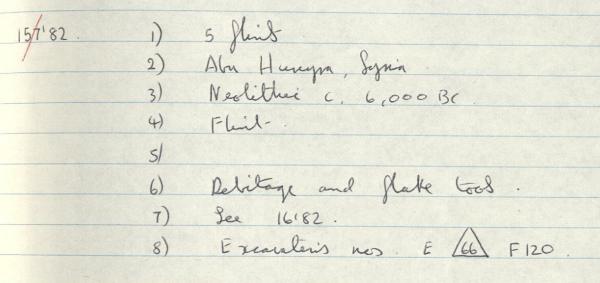 157'82. 1) 5 flints
2) Abu Hureyra, Syria.
3) Neolithic c. 6,000 BC
4) Flint.
5)
6) Debitage and flake tools.
7) See 16'82.
8) Excavations nos. E 66 F120.